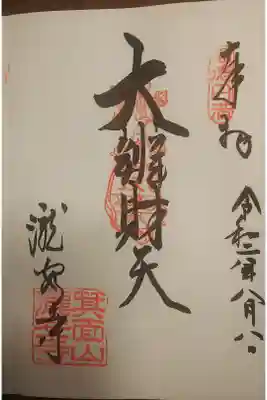 奉拝
令和二年八月八日
大辨財天
瀧安寺
箕面山
瀧安寺